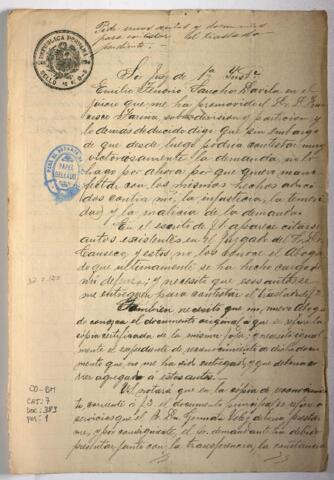 Pide unos autos y documentos
para contestar el traslado
pendiente.
REPUBLICA PERUANA
SELLO
PAPEL
SELLADO
Sr. Juez de 1ª Inst.ª
Emilio Tenorio Sancho Dávila en el
juicio que me ha promovido el D. D.
Farina, sobre division y particion y
lo demas deducido digo: que sin embargo
de que desde luego podria contestar
victoriosamente la demanda, no lo
hago por ahora por que quiero mani-
festar con los mismos hechos
contra mi, la injusticia, la temeri-
dad y la malicia de la demanda.
En el escrito de
autos existentes en el Juzgado del D. D.
Canseco, y estos no los conoce el Aboga
do que ultimamente se ha hecho cargo de
mi defensa; y necesito que esos autos se
me entreguen para contestar el traslado
Tambien necesito que mi nuevo Aboga
do conozca el documento original á que se refiere la
copia certificada de la misma foja; y necesito igual
mente el expediente de reconocimiento de dicho docu
mento que no me ha sido entregado, y que debe co
rrer agregado a estos autos.
Ud. notará que en la copia de reconocimien
to, corriente á f. 3 el documento principal se refiere a
servicios que el B. Dn. German debia prestar
me, y por consiguiente, el Sr. demandante ha debido
presentar junto con la transferencia, la constancia
CO-BM
CAT: 7
Doc: 383